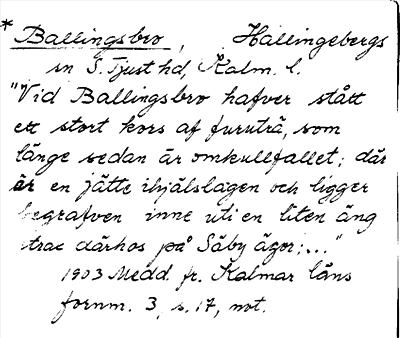 * Ballingsbro, Hallingebergs
sn S. Tjust hd, Kalm. l.
"Vid Ballingsbro hafver stått
ett stort kors af furuträ, som
länge sedan är omkullfallet; där
är en jätte ihjälslagen och ligger
begrafven inne uti en liten äng
strax därhos på Säby ägor; ..."
1903 Medd. fr. Kalmar läns
fornm. 3, s. 17, not.